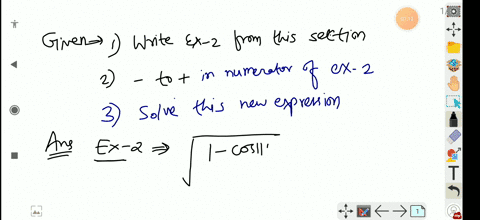 Given⇒ 1) Write Ex-2 from this section
2) - to + in numerator of ex-2
3) Solve this new expression
Ans Ex-2 ⇒ √1-cos11'